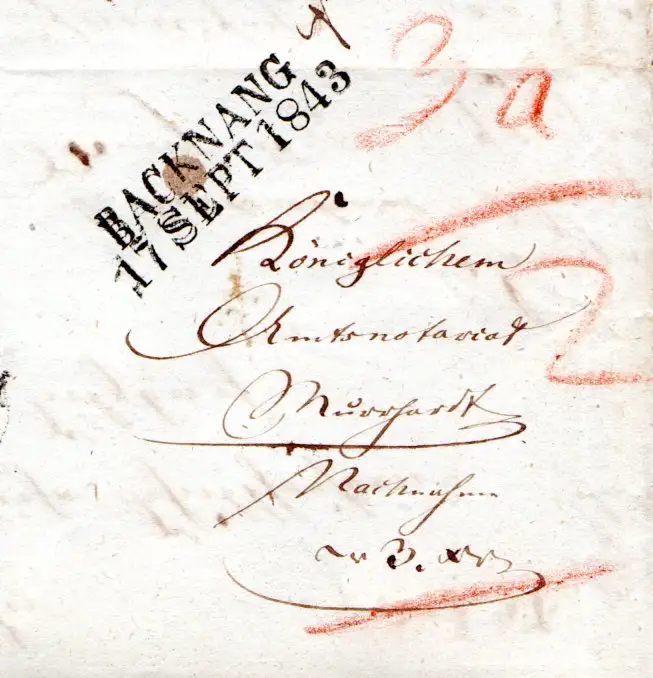 BACKNANG
17 SEPT 1843
3 a
2
Königlichem
Amtsnotariat
Murrhardt
Nachnahme
3. xr